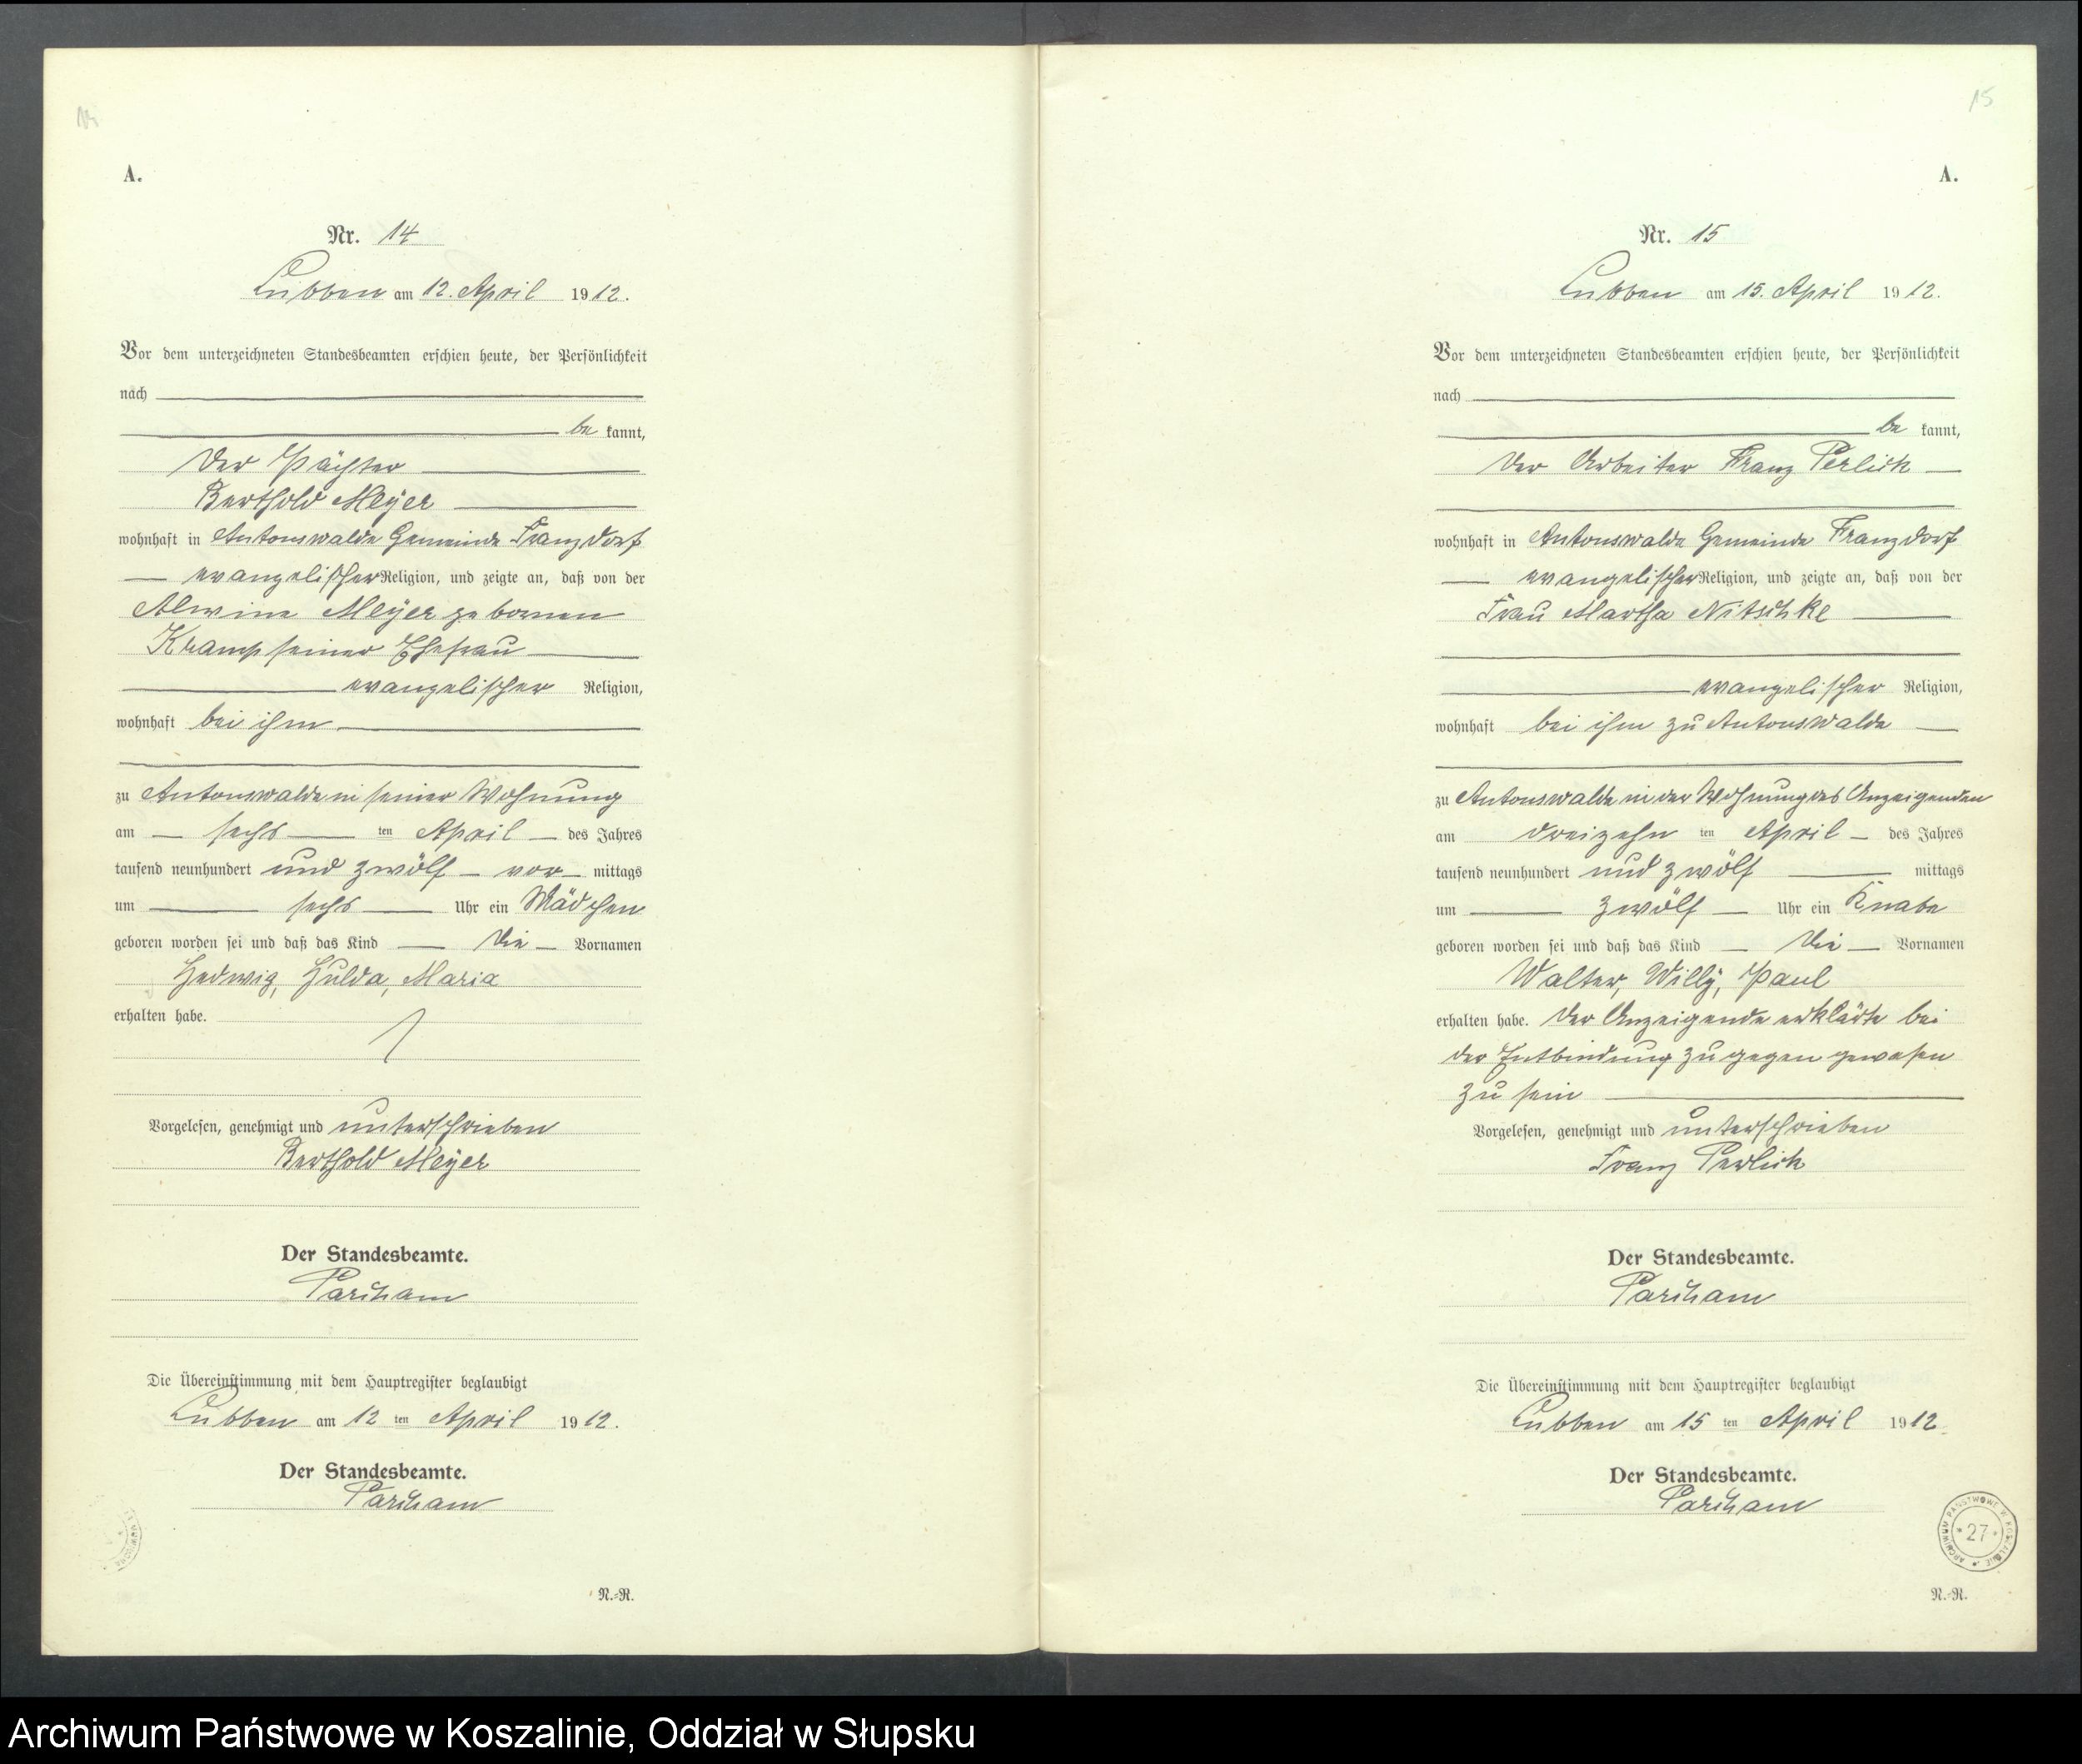 A.
Nr. 14
Lubben am 12. April 1912.
Vor dem unterzeichneten Standesbeamten erschien heute, der Persönlichkeit
nach
be kannt,
der Pächter
Berthold Meÿer
wohnhaft in Antonswalde Gemeinde Franzdorf
evangelischer Religion, und zeigte an, daß von der
Alwine Meÿer geborenen
Kramp seiner Ehefrau
evangelischer Religion,
wohnhaft bei ihm
zu Antonswalde in seiner Wohnung
am sechs ten April des Jahres
tausend neunhundert und zwölf vor mittags
um sechs Uhr ein Mädchen
geboren worden sei und daß das Kind die Vornamen
Hedwig, Hulda, Maria
erhalten habe.
Vorgelesen, genehmigt und unterschrieben
Berthold Meÿer
Der Standesbeamte.
Die Übereinstimmung mit dem Hauptregister beglaubigt
Lubben am 12 ten April 1912.
Der Standesbeamte.
N.-R.
15
A.
Nr. 15
Lubben am 15. April 1912.
Vor dem unterzeichneten Standesbeamten erschien heute, der Persönlichkeit
nach
be kannt,
der Arbeiter Franz Perlick
wohnhaft in Antonswalde Gemeinde Franzdorf
evangelischer Religion, und zeigte an, daß von der
Frau Martha Nitschke
evangelischer Religion,
wohnhaft bei ihm zu Antonswalde
zu Antonswalde in der Wohnung des Anzeigenden
am dreizehn ten April des Jahres
tausend neunhundert und zwölf mittags
um zwölf Uhr ein Knabe
geboren worden sei und daß das Kind die Vornamen
Walter, Willÿ, Paul
erhalten habe. Der Anzeigende erklärte bei
der Entbindung zugegen gewesen
zu sein
Vorgelesen, genehmigt und unterschrieben
Franz Perlick
Der Standesbeamte.
Die Übereinstimmung mit dem Hauptregister beglaubigt
Lubben am 15 ten April 1912.
Der Standesbeamte.
ARCHIWUM PAŃSTWOWE W KOSZALINIE
* 27 *
N.-R.
Archiwum Państwowe w Koszalinie, Oddział w Słupsku